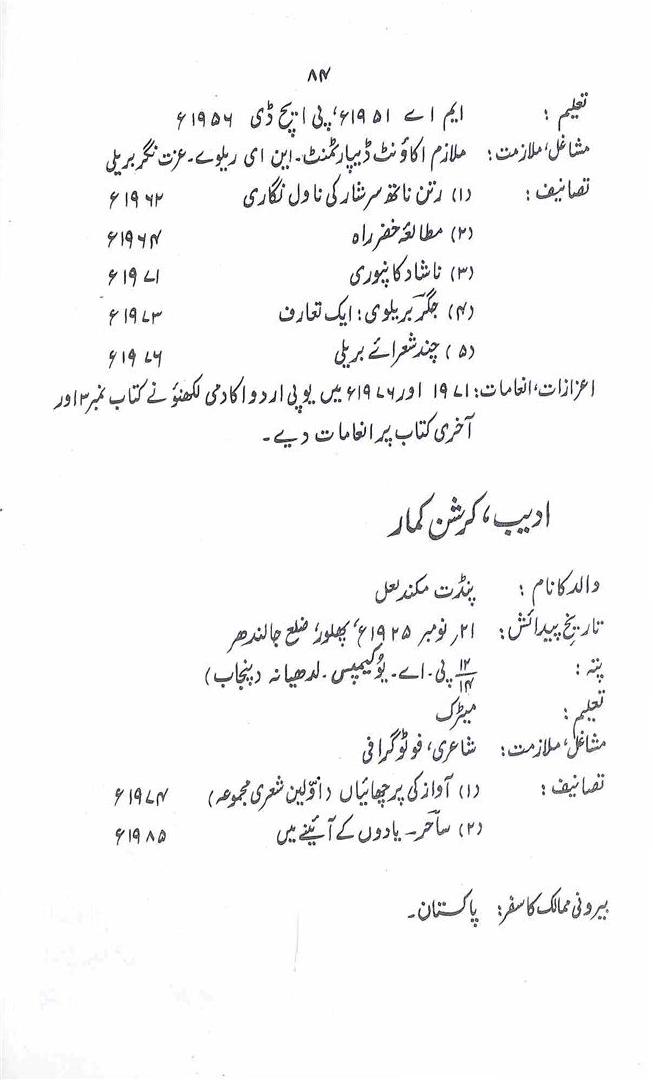 ۸۴
تعلیم: ایم اے ۱۹۵۱ء، پی ایچ ڈی ۱۹۵۶ء
مشاغل، ملازمت: ملازم اکاؤنٹ ڈیپارٹمنٹ۔ این ای ریلوے۔ عزت نگر بریلی
تصانیف: (۱) رتن ناتھ سرشار کی ناول نگاری ۱۹۶۲ء
(۲) مطالعۂ خضر راہ ۱۹۶۴ء
(۳) ناشاد کانپوری ۱۹۷۱ء
(۴) جگرؔ بریلوی: ایک تعارف ۱۹۷۳ء
(۵) چند شعرائے بریلی ۱۹۷۶ء
اعزازات، انعامات: ۱۹۷۱ اور ۱۹۷۶ء میں یو پی اردو اکادمی لکھنؤ نے کتاب نمبر ۳ اور
آخری کتاب پر انعامات دیے۔
ادیب، کرشن کمار
والد کا نام: پنڈت مکند لعل
تاریخِ پیدائش: ۲۱؍ نومبر ۱۹۲۵ء، پھلور، ضلع جالندھر
پتہ: ۱۲/۱۴ پی۔ اے۔ یُو کیمپس۔ لدھیانہ (پنجاب)
تعلیم: میٹرک
مشاغل، ملازمت: شاعری، فوٹوگرافی
تصانیف: (۱) آواز کی پرچھائیاں (اوّلین شعری مجموعہ) ۱۹۷۴ء
(۲) ساحرؔ۔ یادوں کے آئینے میں ۱۹۸۵ء
بیرونی ممالک کا سفر: پاکستان۔